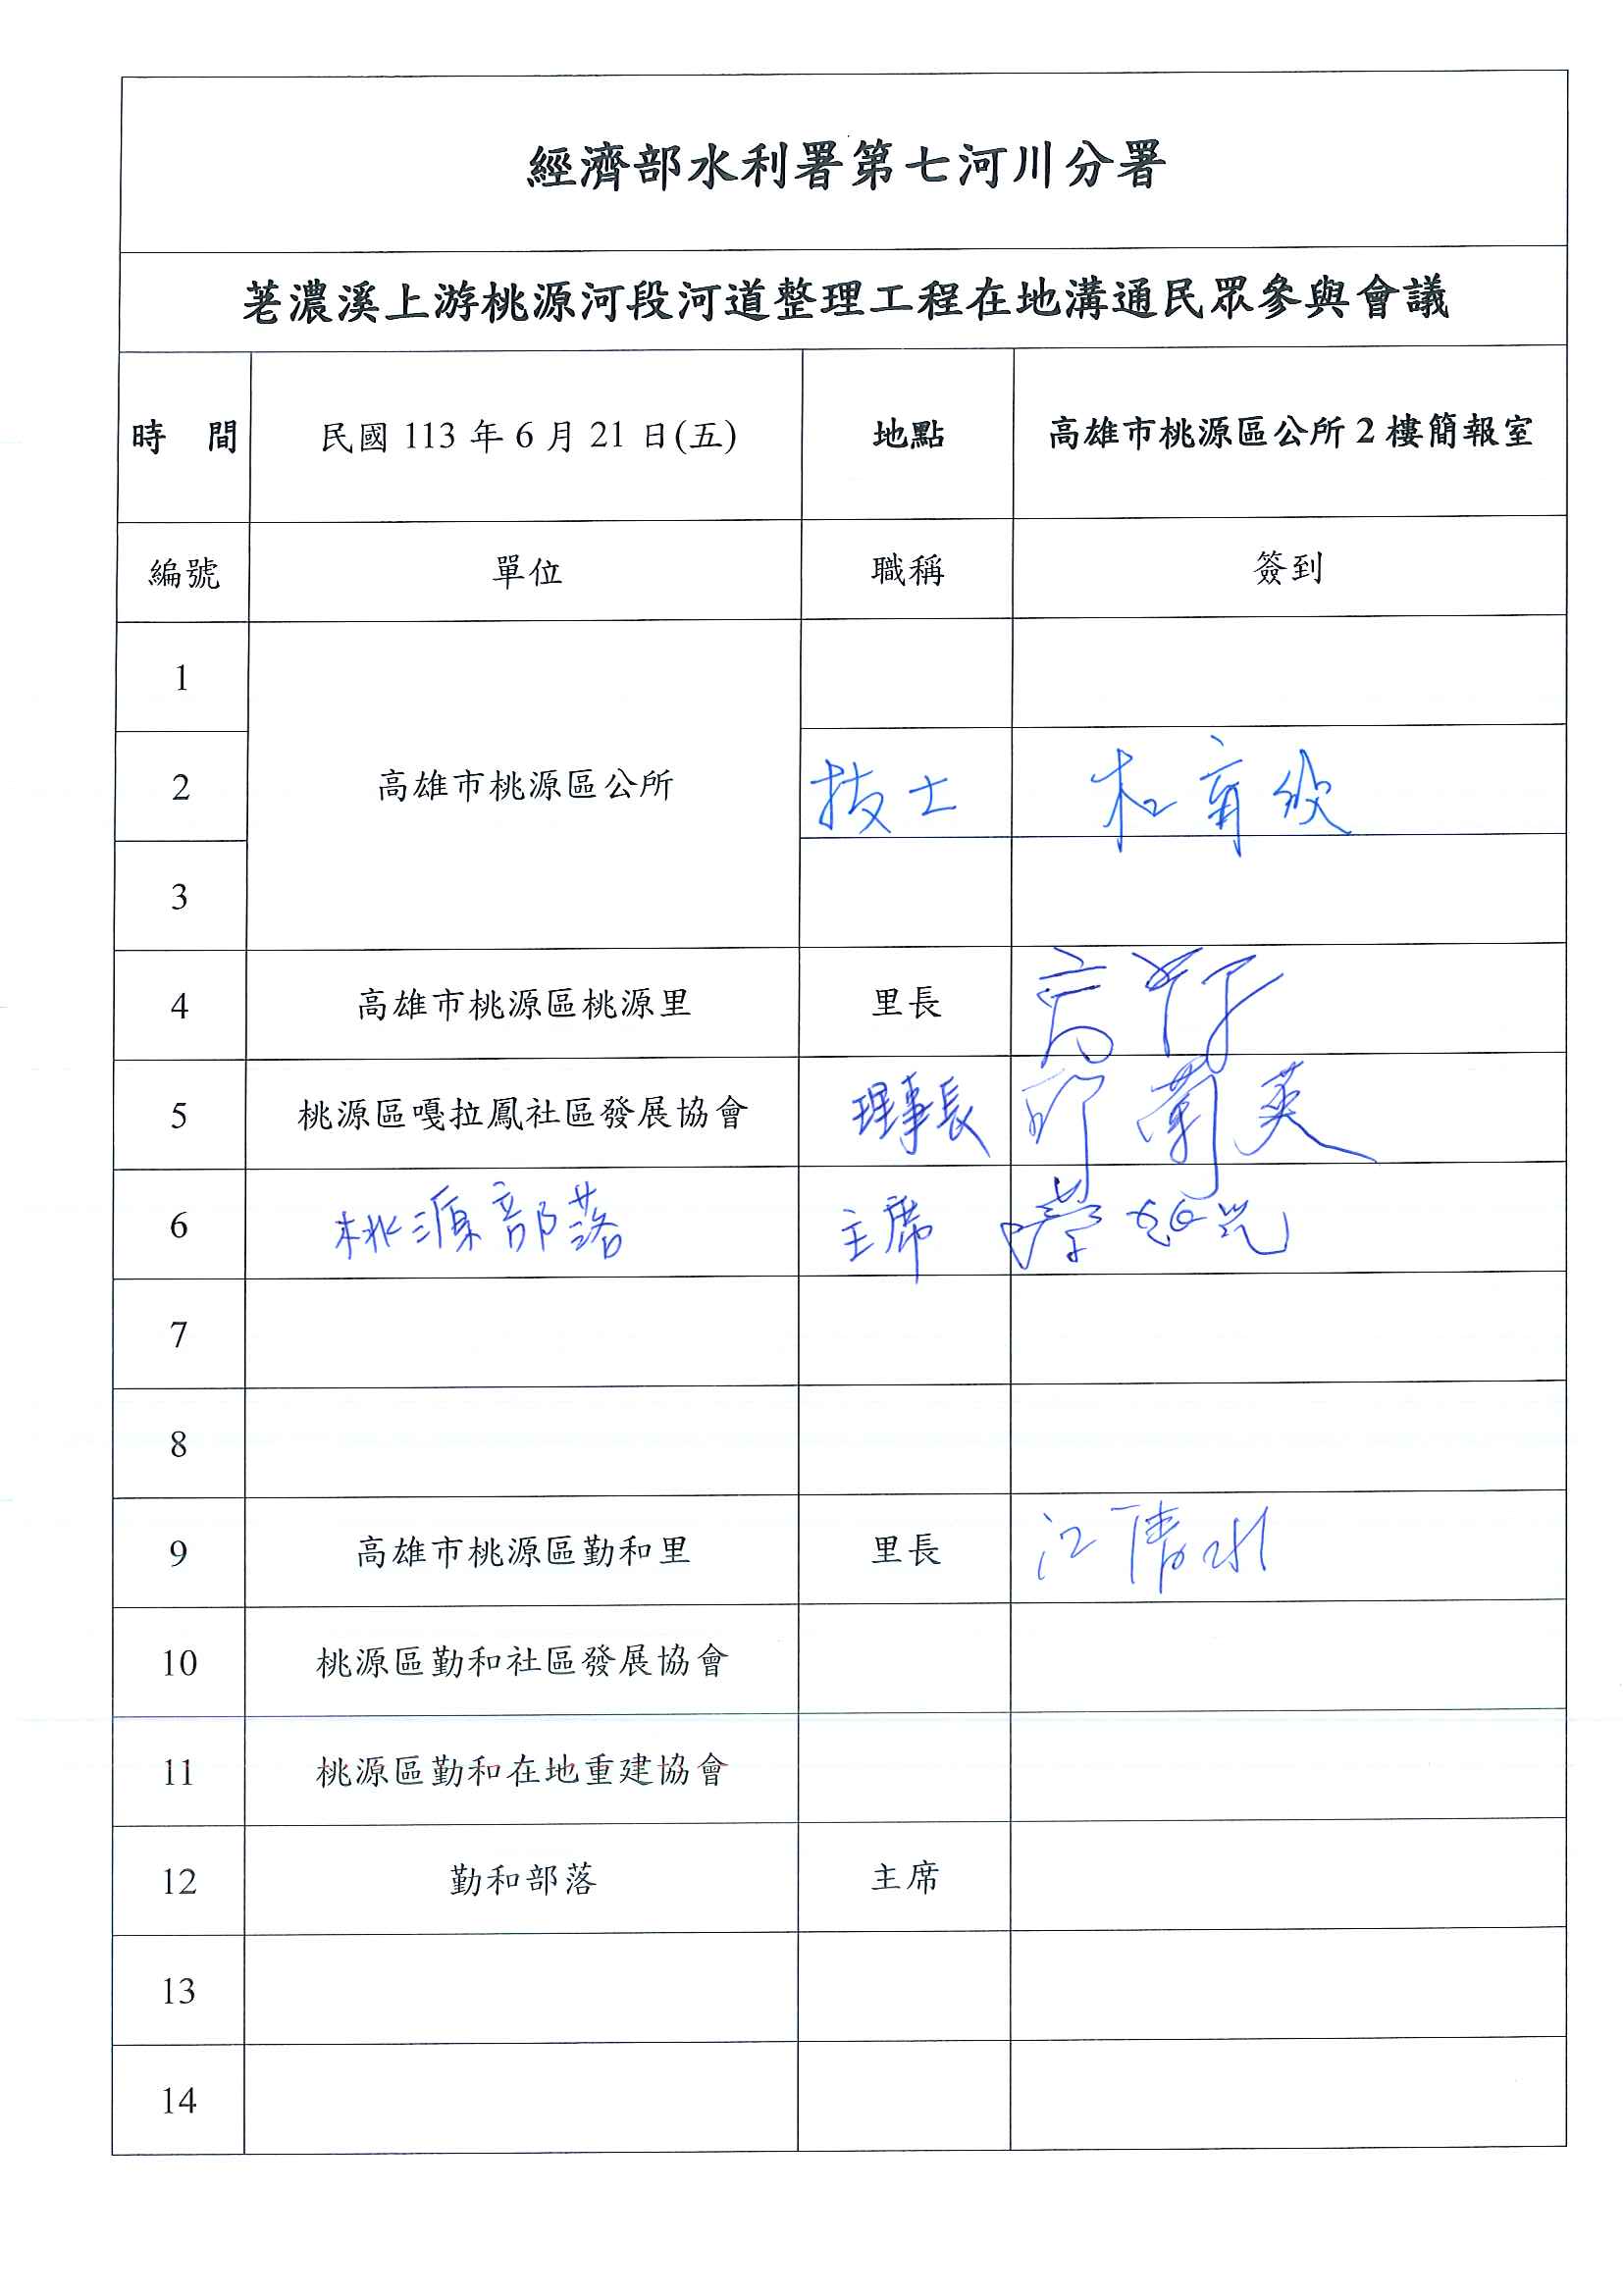 經濟部水利署第七河川分署
荖濃溪上游桃源河段河道整理工程在地溝通民眾參與會議
時 間 民國 113 年 6 月 21 日(五) 地點 高雄市桃源區公所 2 樓簡報室
編號 單位 職稱 簽到
1
高雄市桃源區公所
2 技士
3
4 高雄市桃源區桃源里 里長
5 桃源區嘎拉鳳社區發展協會 理事長 邱蘭英
6 桃源部落 主席
7
8
9 高雄市桃源區勤和里 里長 江清水
10 桃源區勤和社區發展協會
11 桃源區勤和在地重建協會
12 勤和部落 主席
13
14